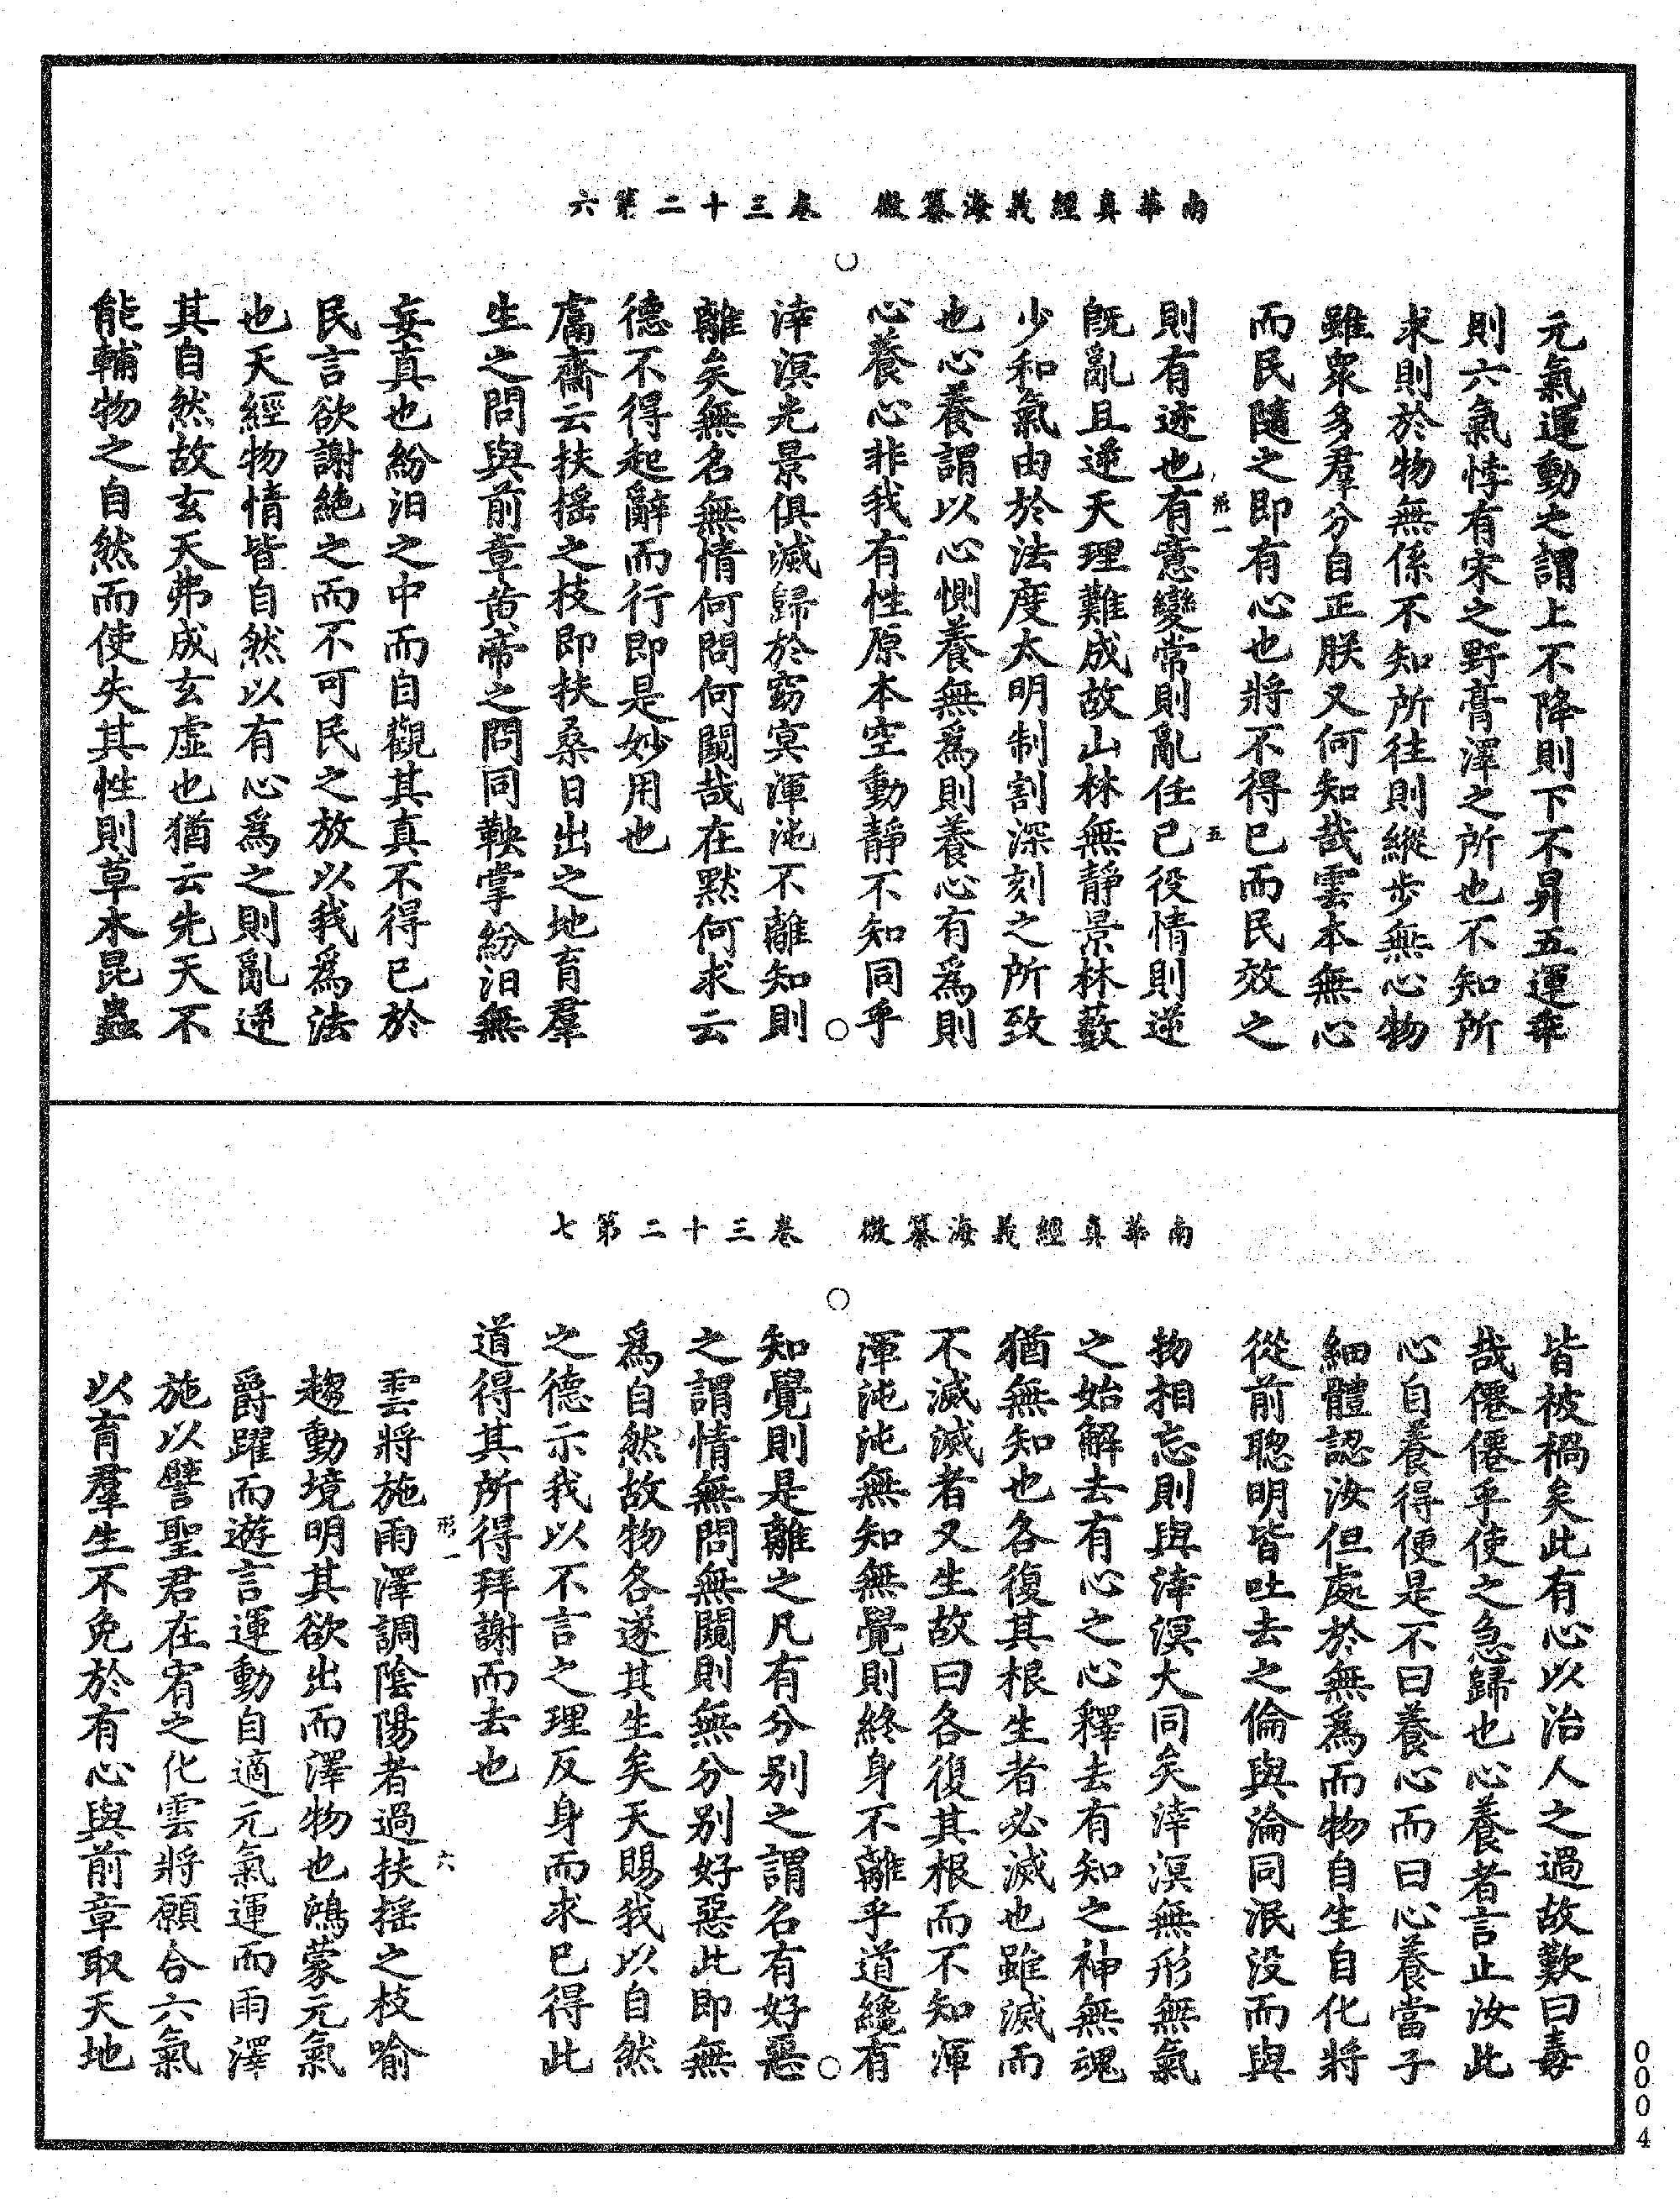 南華真經義海纂微　卷三十二第六
元氣運動之謂上不降則下不昇五運乖
則六氣悖有宋之野膏澤之所也不知所
求則於物無係不知所往則縱步無心物
雖衆多羣分自正朕又何知哉雲本無心
而民隨之即有心也將不得已而民效之
則有迹也有意變常則亂任已役情則逆
既亂且逆天理難成故山林無靜景林藪
少和氣由於法度太明制割深刻之所致
也心養謂以心惻養無爲則養心有爲則
心養心非我有性原本空動靜不知同乎
涬溟光景俱滅歸於窈冥渾沌不離知則
離矣無名無情何問何闚哉在默何求云
德不得起辭而行即是妙用也
鬳齋云扶摇之枝即扶桑日出之地育羣
生之問與前章黄帝之問同鞅掌紛汩無
妄真也紛汩之中而自觀其真不得已於
民言欲謝絶之而不可民之放以我爲法
也天經物情皆自然以有心爲之則亂逆
其自然故玄天弗成玄虚也猶云先天不
能輔物之自然而使失其性則草木昆蟲
形一
五
南華真經義海纂微　卷三十二第七
皆被禍矣此有心以治人之過故歎曰毒
哉僊僊乎使之急歸也心養者言止汝此
心自養得便是不曰養心而曰心養當子
細體認汝但處於無爲而物自生自化將
從前聰明皆吐去之倫與淪同泯没而與
物相忘則與涬溟大同矣涬溟無形無氣
之始解去有心之心釋去有知之神無魂
猶無知也各復其根生者必滅也雖滅而
不滅滅者又生故曰各復其根而不知渾
渾沌沌無知無覺則終身不離乎道纔有
知覺則是離之凡有分别之謂名有好惡
之謂情無問無闚則無分别好惡此即無
爲自然故物各遂其生矣天賜我以自然
之德示我以不言之理反身而求已得此
道得其所得拜謝而去也
雲將施雨澤調陰陽者過扶摇之枝喻
趨動境明其欲出而澤物也鴻蒙元氣
爵躍而遊言運動自適元氣運而雨澤
施以譬聖君在宥之化雲將願合六氣
以育羣生不免於有心與前章取天地
形一
六
0004